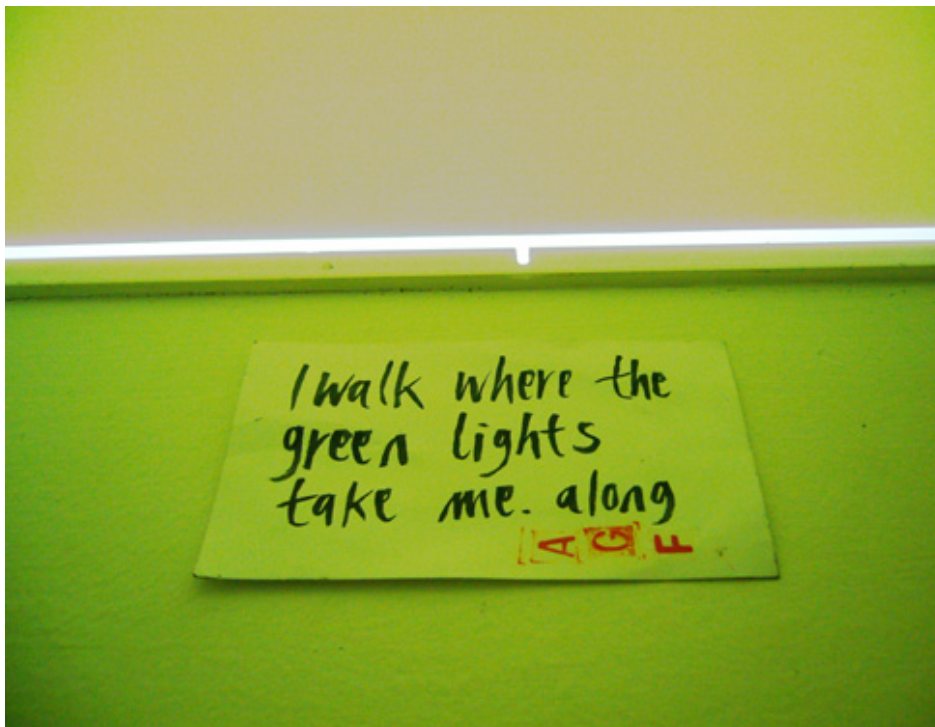 I walk where the
green lights
take me. along
A G F